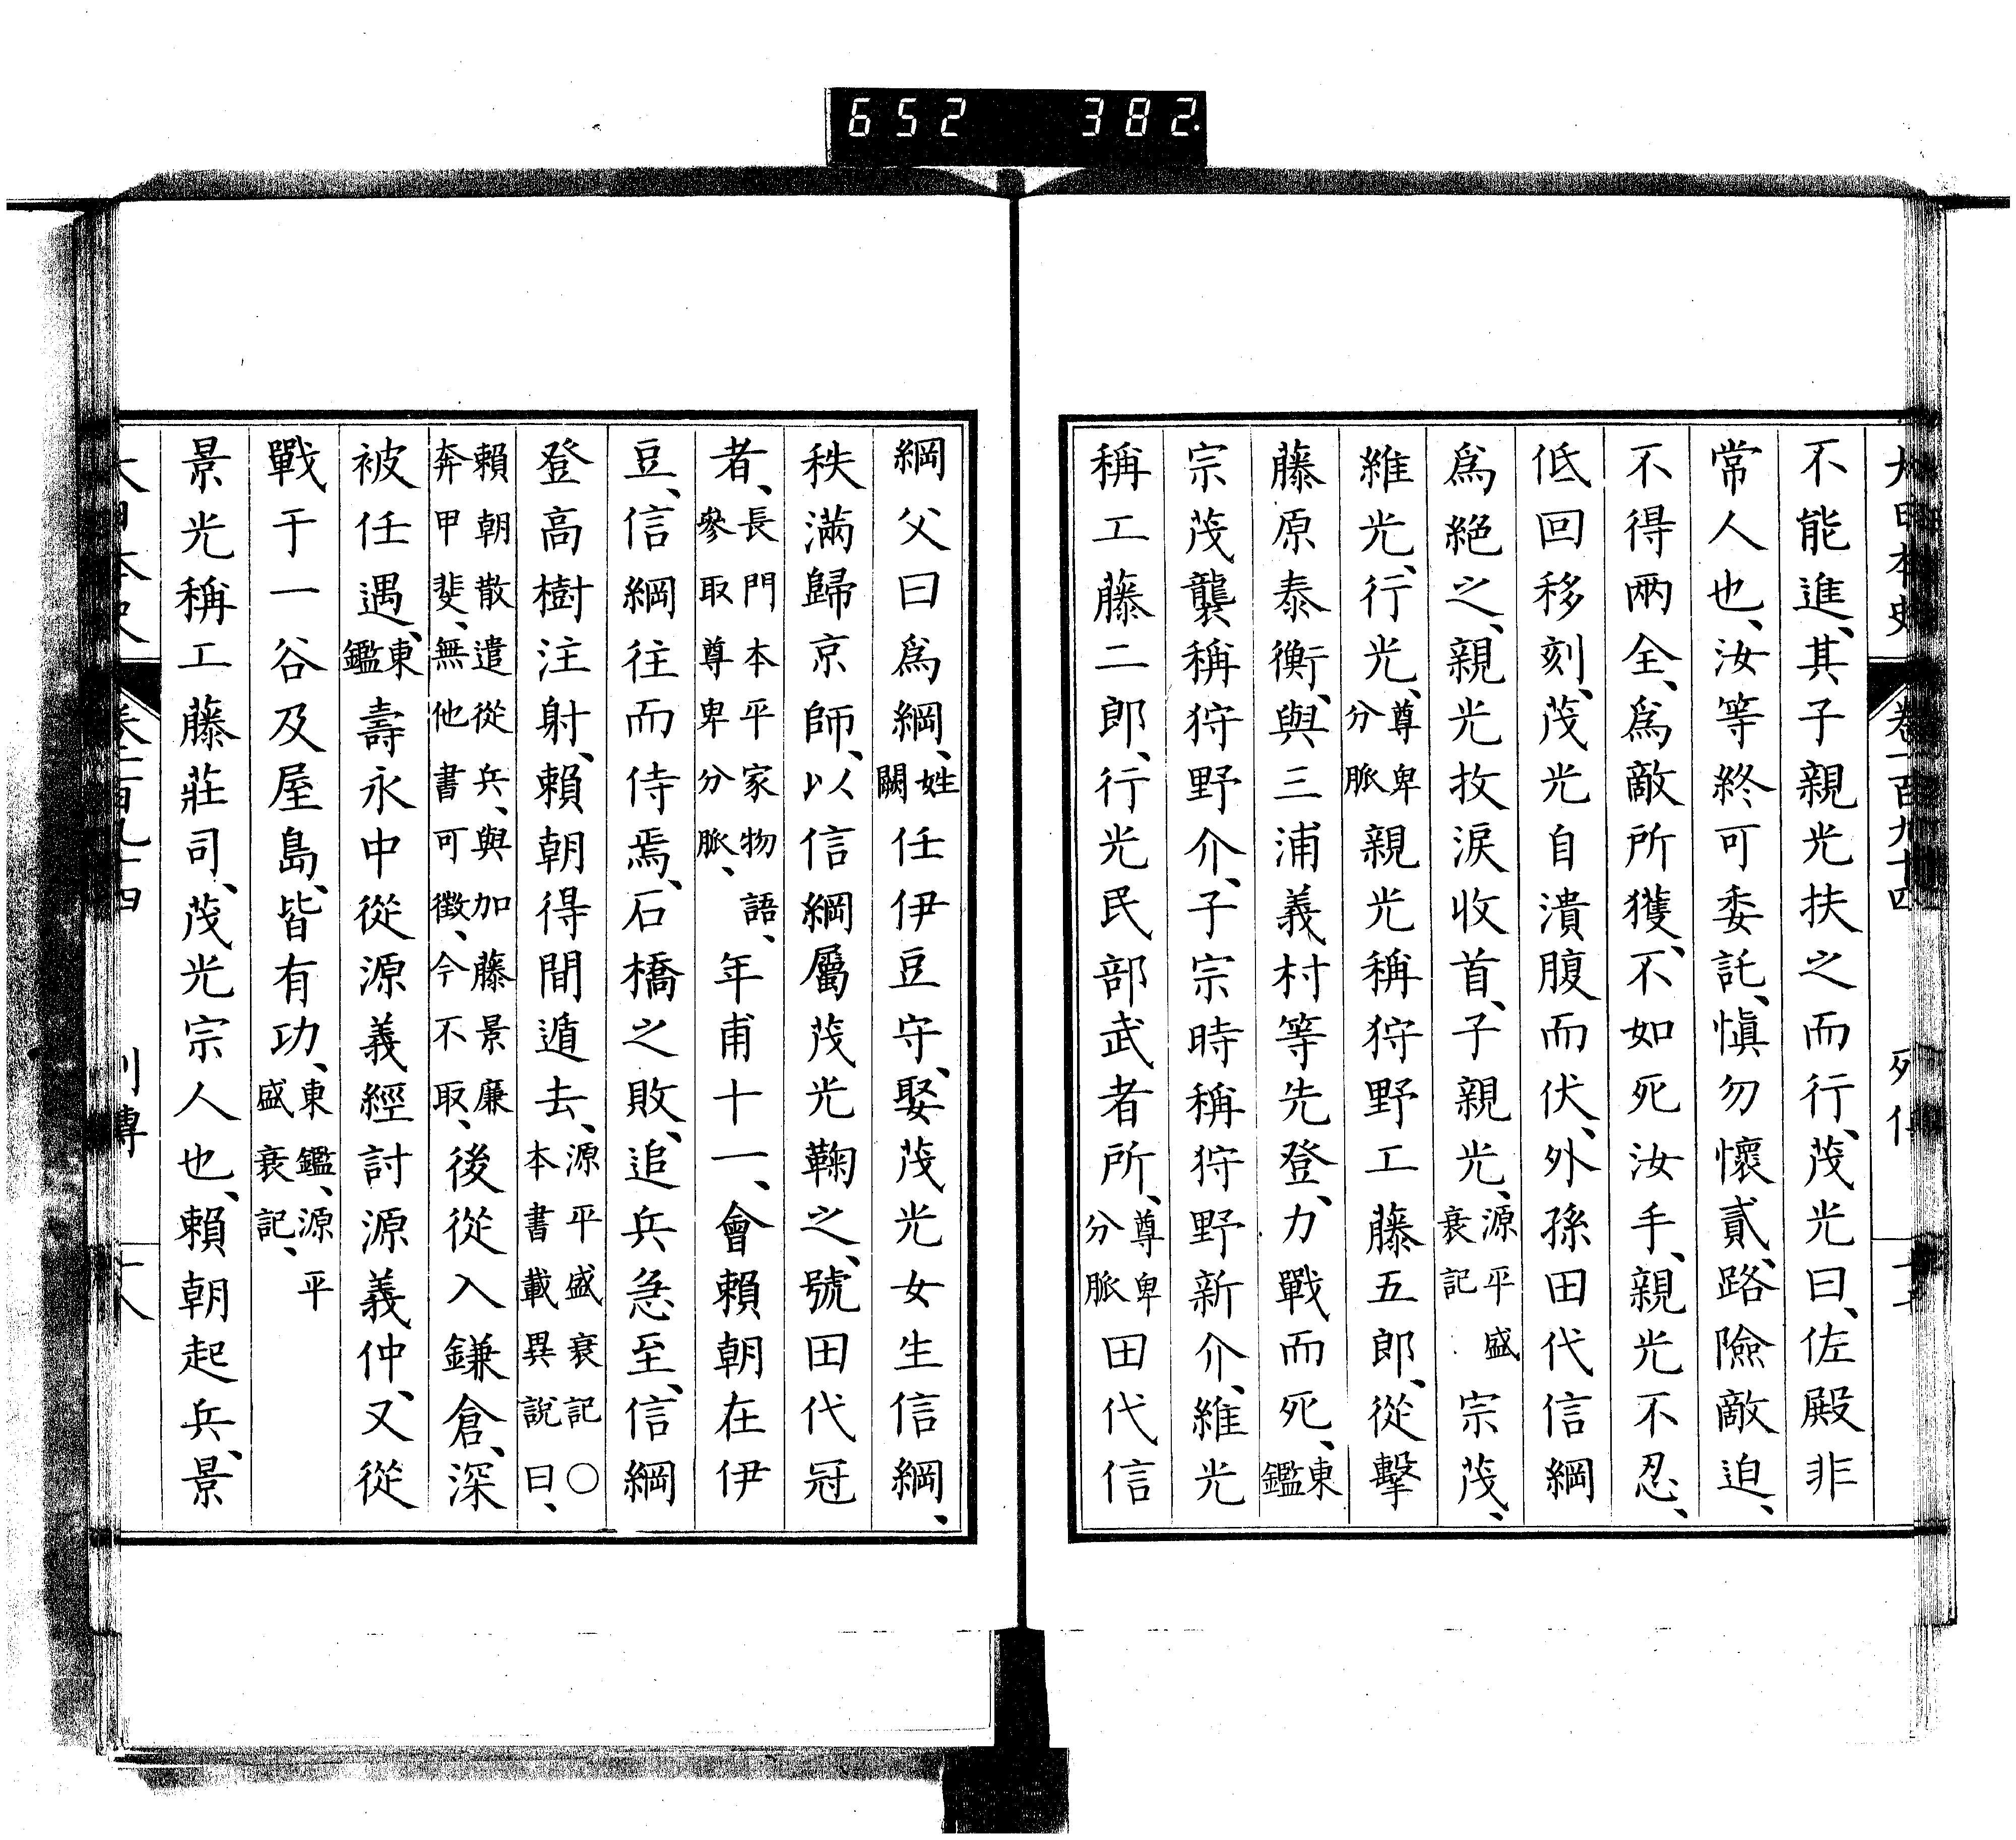 652 382
大日本史 卷一百九十四
不能進、其子親光扶之而行、茂光曰、佐殿非
常人也、汝等終可委託、愼勿懷貳、路險敵迫、
不得兩全、爲敵所獲、不如死汝手、親光不忍、
低回移刻、茂光自潰腹而伏、外孫田代信綱
爲絕之、親光抆淚收首、子親光、源平盛衰記 宗茂、
維光、行光、尊卑分脈 親光稱狩野工藤五郎、從擊
藤原泰衡、與三浦義村等先登、力戰而死、東鑑
宗茂襲稱狩野介、子宗時稱狩野新介、維光
稱工藤二郎、行光民部武者所、尊卑分脈 田代信
綱父曰爲綱、姓闕 任伊豆守、娶茂光女生信綱、
秩滿歸京師、以信綱屬茂光鞠之、號田代冠
者、長門本平家物語、參取尊卑分脈、 年甫十一、會賴朝在伊
豆、信綱往而侍焉、石橋之敗、追兵急至、信綱
登高樹注射、賴朝得間遁去、源平盛衰記〇本書載異說曰、
賴朝散遣從兵、與加藤景廉奔甲斐、無他書可徵、今不取、 後從入鎌倉、深
被任遇、東鑑 壽永中從源義經討源義仲、又從
戰于一谷及屋島、皆有功、東鑑、源平盛衰記、
景光稱工藤莊司、茂光宗人也、賴朝起兵、景